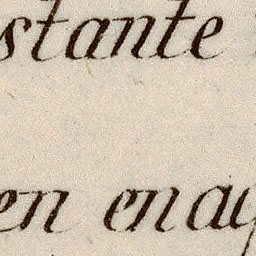 stante
en enaq